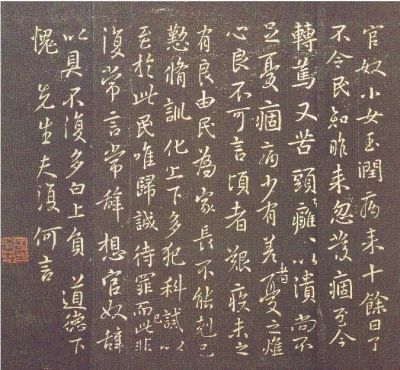 官奴小女玉潤病来十餘日了
不令民知昨来忽發痼至今
轉篤又苦頭〻癰〻以潰尚不
足憂痼病少有差者憂之燋
心良不可言頃者艱疾未之
有良由民為家長不能剋己
懃脩訓化上下多犯科誡以
至於此民唯歸誠待罪而此非
復常言常辭想官奴辭
以具不復多白上負道德下
愧先生夫復何言